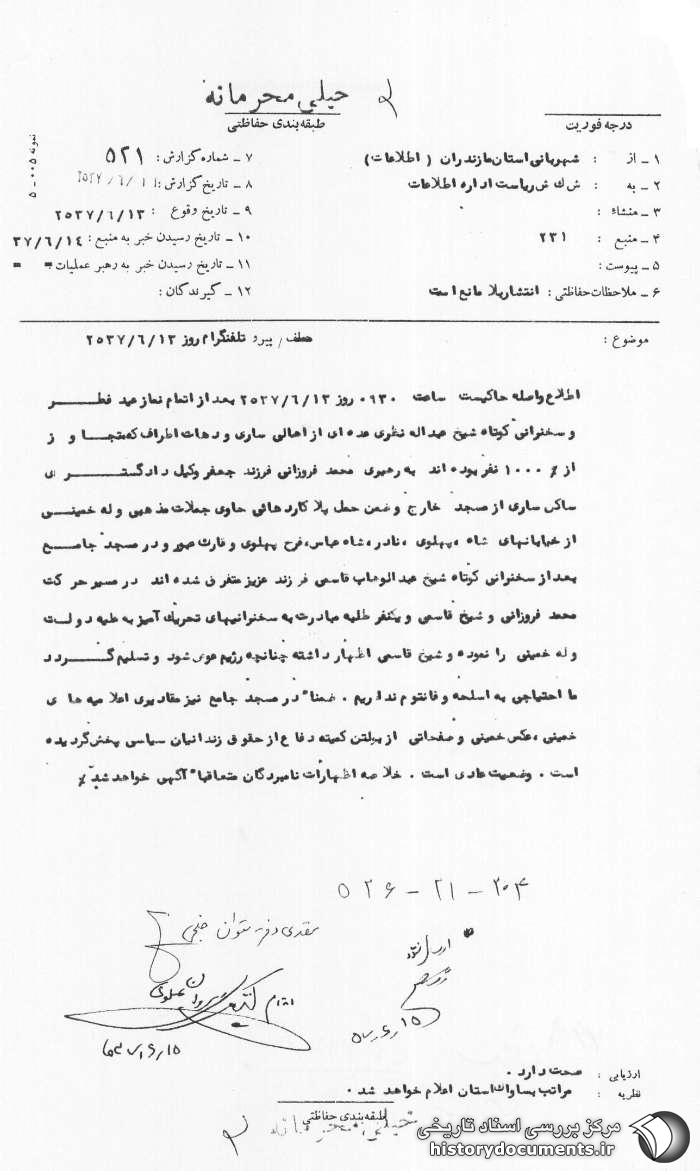 خیلی محرمانه
طبقه‌بندی حفاظتی
درجه فوریت
نمونه ۰۰۵ - ۵
۱ - از : شهربانی استان مازندران ( اطلاعات )
۲ - به : ش ک ش ریاست اداره اطلاعات
۳ - منشاء :
۴ - منبع : ۲۳۱
۵ - پیوست :
۶ - ملاحظات حفاظتی : انتشار بلا مانع است
۷ - شماره گزارش : ۵۲۱
۸ - تاریخ گزارش :
۹ - تاریخ وقوع : ۲۵۳۷/۶/۱۳
۱۰ - تاریخ رسیدن خبر به منبع : ۳۷/۶/۱۴
۱۱ - تاریخ رسیدن خبر به رهبر عملیات = =
۱۲ - گیرندگان :
موضوع : عطف/ پیرو تلفنگرام روز ۲۵۳۷/۶/۱۳
اطلاع واصله حاکیست ساعت ۰۹۳۰ روز ۲۵۳۷/۶/۱۳ بعد از اتمام نماز عید فطر
و سخنرانی کوتاه شیخ عبداله نظری عده ای از اهالی ساری و دهات اطراف که متجا و ز
از ٪ ۱۰۰۰ نفر بوده اند به رهبری محمد فروزانی فرزند جعفر وکیل دادگستری
ساکن ساری از مسجد خارج و ضمن حمل پلاکاردهائی حاوی جملات مذهبی و له خمینی
از خیابانهای شاه ، پهلوی ، نادر ، شاه عباس ، فرح پهلوی و قارن عبور و در مسجد جامع
بعد از سخنرانی کوتاه شیخ عبدالوهاب قاسمی فرزند عزیز متفرق شده اند در مسیر حرکت
محمد فروزانی و شیخ قاسمی و یکنفر طلبه مبادرت به سخنرانیهای تحریک آمیز به علیه دولت
و له خمینی را نموده و شیخ قاسمی اظهار داشته چنانچه رژیم عوض شود و تسلیم گردد
ما احتیاجی به اسلحه و فانتوم نداریم . ضمناً در مسجد جامع نیز مقادیری اعلامیه های
خمینی ، عکس خمینی و صفحاتی از بولتن کمیته دفاع از حقوق زندانیان سیاسی پخش گردیده
است . وضعیت عادی است . خلاصه اظهارات نامبردگان متعاقباً آگهی خواهد شد ٪
۳۰۴ - ۲۱ - ۵۲۶
۱۵ر۶ر۵۷
اقدام
ارزیابی : صحت دارد .
نظریه : مراتب بساواک استان اعلام خواهد شد .
طبقه‌بندی حفاظتی
خیلی محرمانه
مرکز بررسی اسناد تاریخی
historydocuments.ir